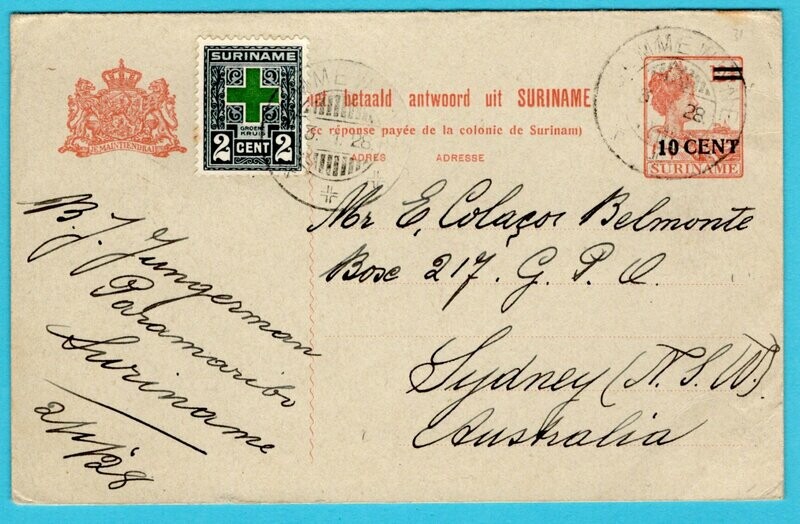 SURINAME
GROENE
KRUIS
2 CENT 2
JE MAINTIENDRAI
betaald antwoord uit SURINAME
réponse payée de la colonie de Surinam)
ADRES ADRESSE
28
28
10 CENT
SURINAME
Mr E. Colaços Belmonte
Box 217. G. P. O.
Sydney (N.S.W.)
Australia
B. J. Jungerman
Paramaribo
Suriname
2/1/28